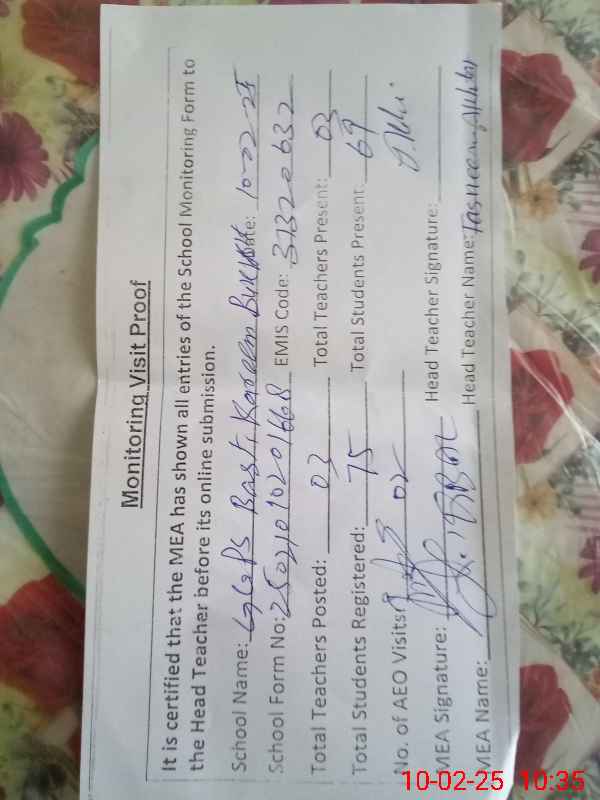 Monitoring Visit Proof
It is certified that the MEA has shown all entries of the School Monitoring Form to
the Head Teacher before its online submission.
School Name: GGPS Basti Kareem Bukhsh Date: 10-02-25
School Form No: 25021010201668 EMIS Code: 31320632
Total Teachers Posted: 03 Total Teachers Present: 03
Total Students Registered: 75 Total Students Present: 69
No. of AEO Visits: 02
MEA Signature: Head Teacher Signature:
MEA Name: IQBAL Head Teacher Name: Tasneem Akhtar
10-02-25 10:35